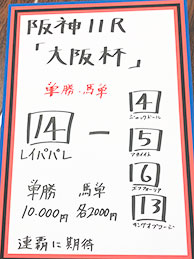 阪神11R
「大阪杯」
単勝・馬単
14 ー
レイパパレ
4
ジャックドール
5
アカイイト
6
エフフォーリア
13
キングオブコージ
単勝 馬単
10.000円 各2000円
連覇に期待